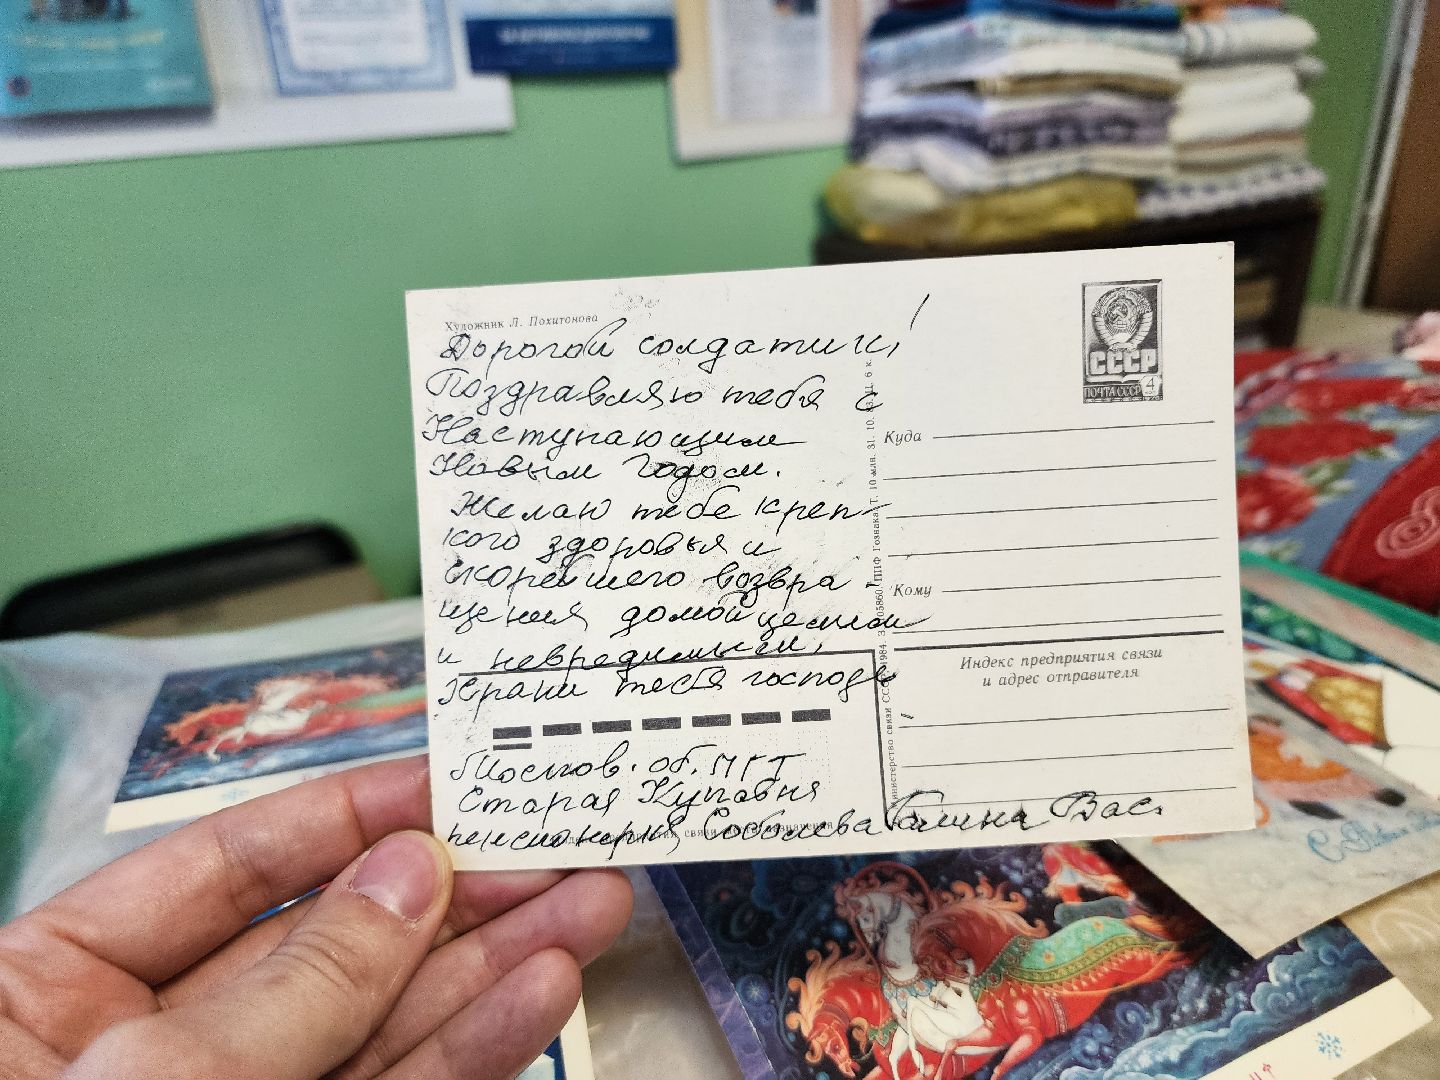 Художник Л. Похитонова
Дорогой солдатик!
Поздравляю тебя с
Наступающим
Новым Годом.
Желаю тебе креп-
кого здоровья и
скорейшего возвра-
щения домой целым
и невредимым,
Храни тебя господь
Москов. об. МГТ
Старая Купавня
пенсионерка Соболева Галина Вас.
СССР
ПОЧТА СССР 4
Куда
Кому
Индекс предприятия связи
и адрес отправителя